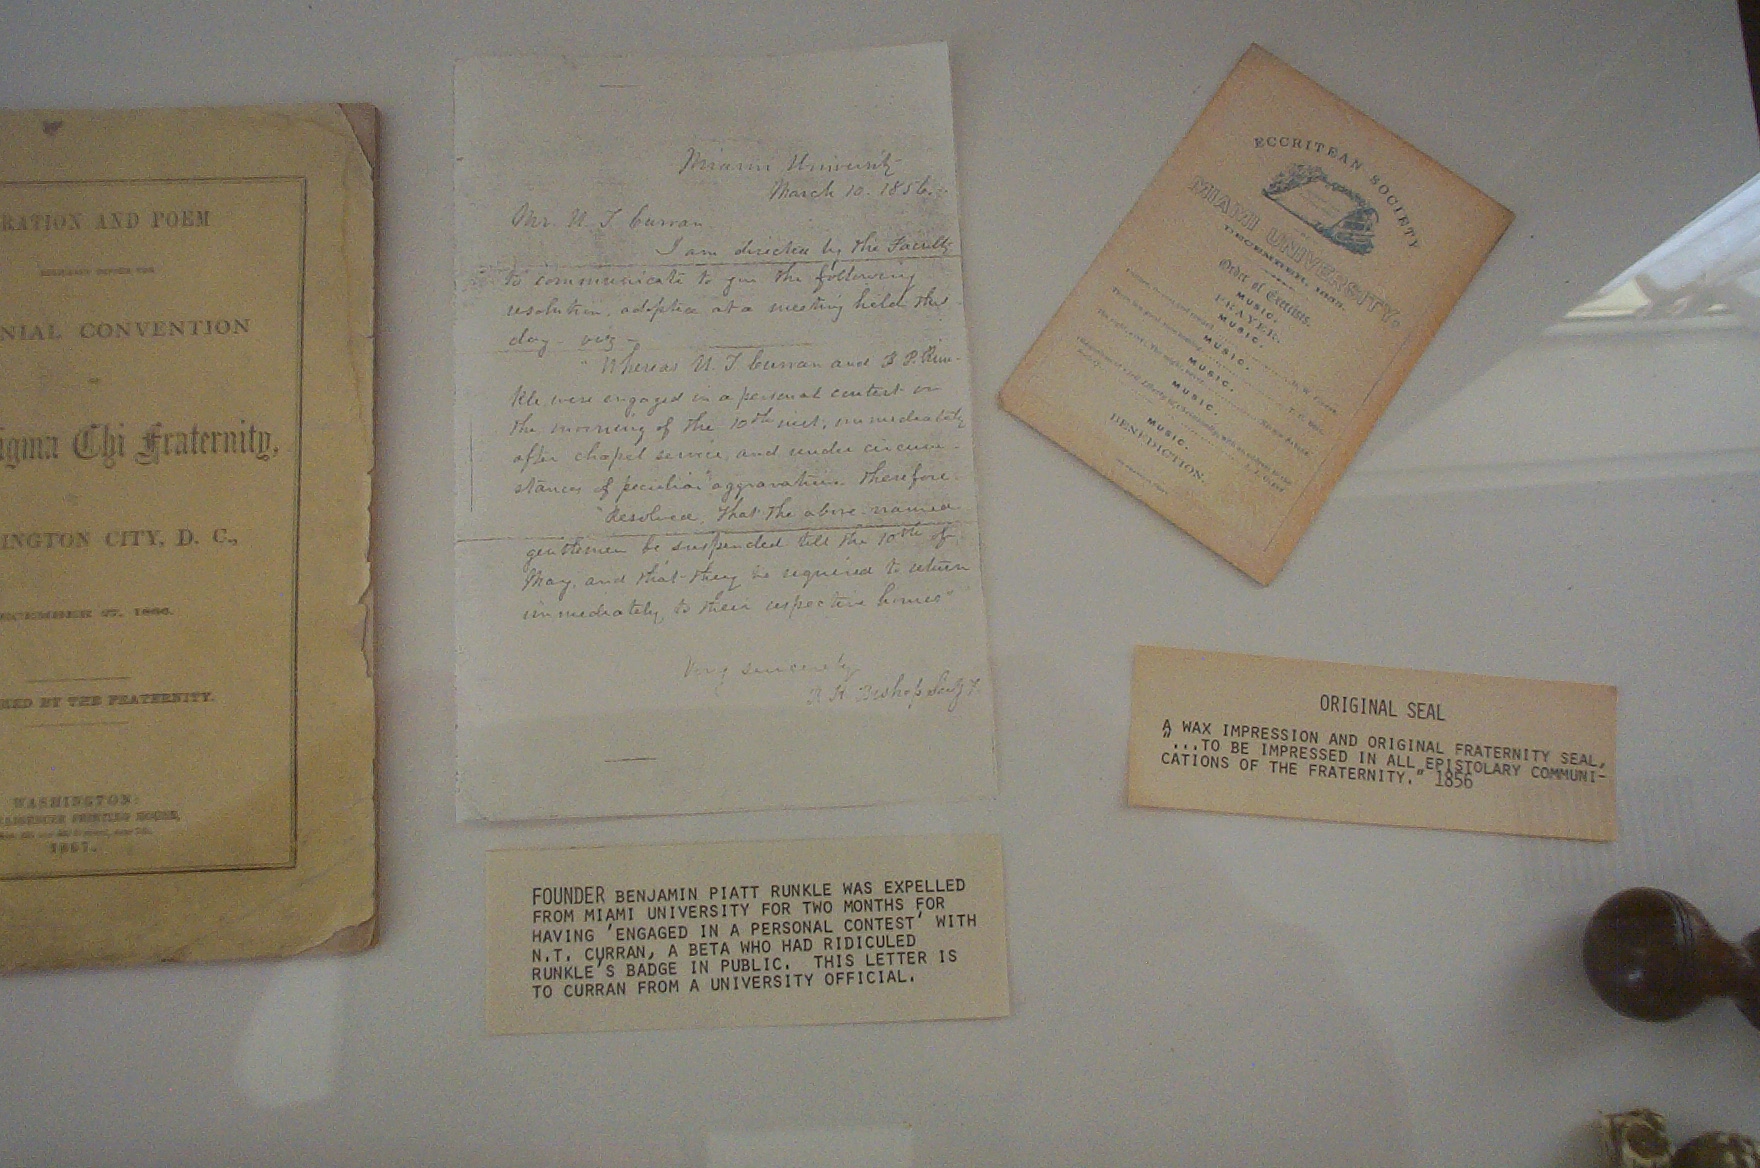 RATION AND POEM
DELIVERED BEFORE THE
NIAL CONVENTION
igma Chi Fraternity,
INGTON CITY, D. C.,
ECEMBER 27, 1866.
ED BY THE FRATERNITY.
WASHINGTON:
PRINTING HOUSE,
1867.
Miami University
March 10. 1856.
Mr. N. T. Curran
I am directed by the Faculty
to communicate to you the following
resolution, adopted at a meeting held this
day- viz-
"Whereas N. T Curran and B. P. Run-
kle were engaged in a personal contest on
the morning of the 10th inst, immediately
after chapel service, and under circum-
stances of peculiar aggravation. Therefore
"Resolved, that the above named
gentlemen be suspended till the 10th of
May, and that they be required to return
immediately to their respective homes"
Very sincerely
R H Bishop Secy
FOUNDER BENJAMIN PIATT RUNKLE WAS EXPELLED
FROM MIAMI UNIVERSITY FOR TWO MONTHS FOR
HAVING 'ENGAGED IN A PERSONAL CONTEST' WITH
N.T. CURRAN, A BETA WHO HAD RIDICULED
RUNKLE'S BADGE IN PUBLIC. THIS LETTER IS
TO CURRAN FROM A UNIVERSITY OFFICIAL.
ECCRITEAN SOCIETY
MIAMI UNIVERSITY.
DECEMBER,
Order of Exercises.
MUSIC.
PRAYER.
MUSIC.
MUSIC.
MUSIC.
MUSIC.
MUSIC.
BENEDICTION.
ORIGINAL SEAL
A WAX IMPRESSION AND ORIGINAL FRATERNITY SEAL,
"...TO BE IMPRESSED IN ALL EPISTOLARY COMMUNI-
CATIONS OF THE FRATERNITY." 1856